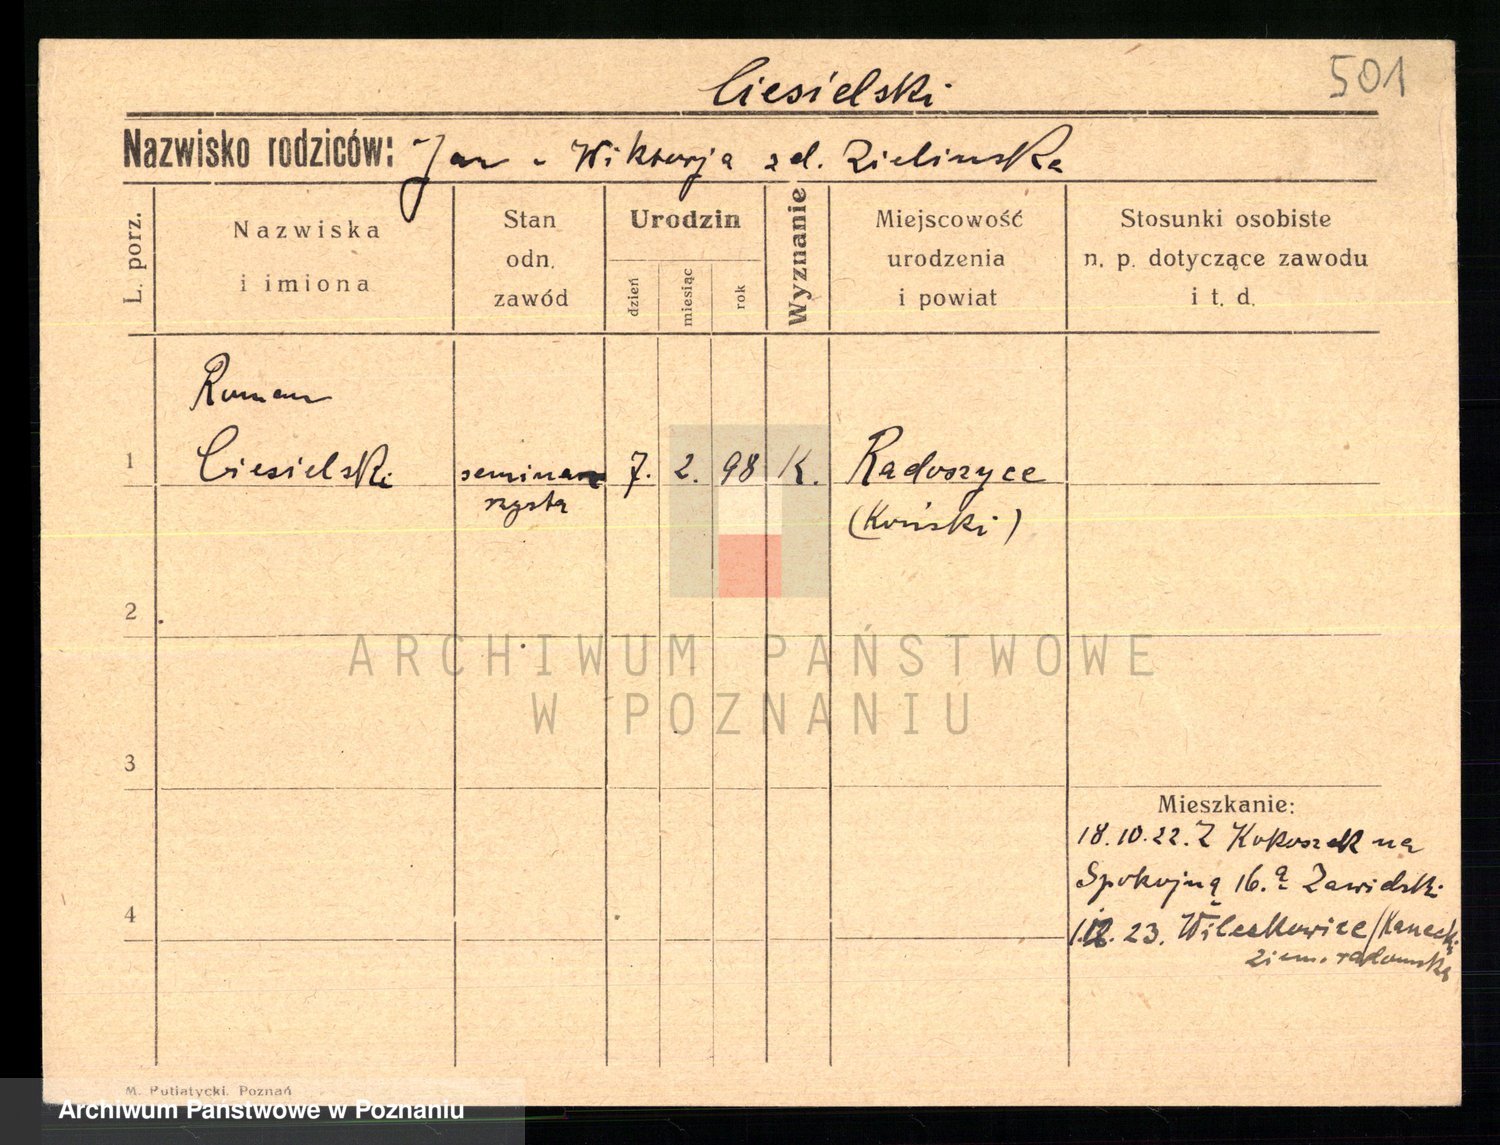 Ciesielski
501
Nazwisko rodziców: Jan - Wiktorja zd. Zielinska
L. porz.
Nazwiska
i imiona
Stan
odn.
zawód
Urodzin
dzień
miesiąc
rok
Wyznanie
Miejscowość
urodzenia
i powiat
Stosunki osobiste
n. p. dotyczące zawodu
i t. d.
Roman
1 Ciesielski seminar 7. 2. 98 K. Radoszyce
zysta (Koński)
2
ARCHIWUM PAŃSTWOWE
W POZNANIU
3
Mieszkanie:
18.10.22. Z Kokoszek na
Spokojną 16. Zawidski
4
23.
ziem. radomska
M. Putiatycki. Poznań
Archiwum Państwowe w Poznaniu